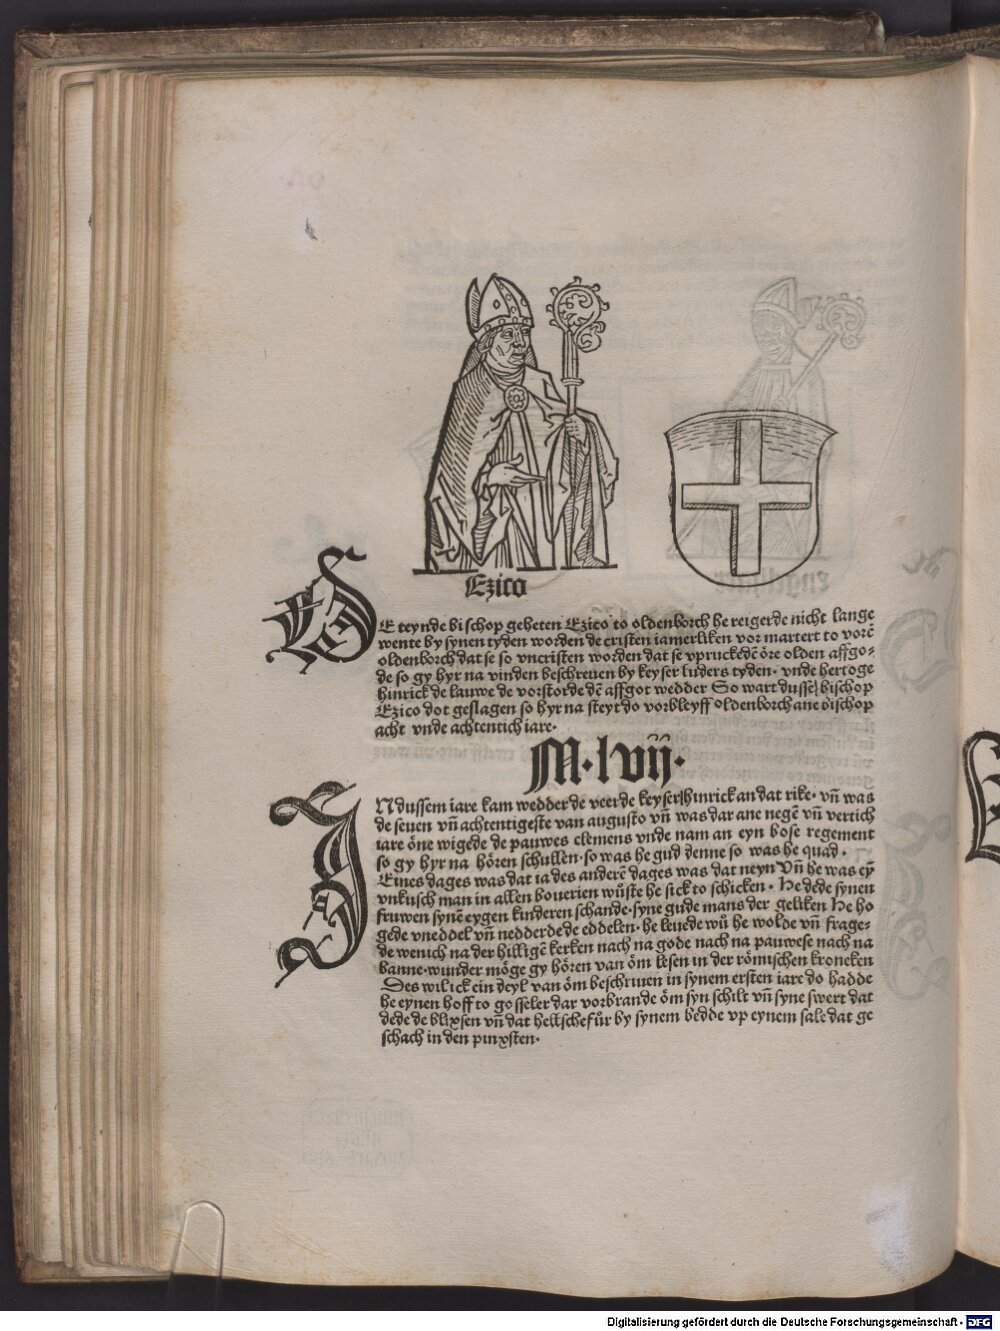 Ezico
DE teynde bischop geheten Ezico to oldenborch he reigerde nicht lange
wente by synen tyden worden de cristen iamerliken vor martert to vorē
oldenborch dat se so vncristen worden dat se vpruckedē ōre olden affgo-
de so gy hyr na vinden beschreuen by keyser luders tyden· vnde hertoge
hinrick de lauwe de vorstorde dē affgot wedder So wart dusse bischop
Ezico dot geslagen so hyr na steyt do vorbleyff oldenborch ane bischop
acht vnde achtentich iare·
M·lvij·
IN dussem iare kam wedder de veerde keyser hinrick an dat rike· vn̄ was
de seuen vn̄ achtentigeste van augusto vn̄ was dar ane negē vn̄ vertich
iare ōne wigede de pauwes clemens vnde nam an eyn bose regement
so gy hyr na hören schullen· so was he gud denne so was he quad·
Eines dages was dat ia des anderē dages was dat neyn Vn̄ he was eȳ
vnkusch man in allen bouerien wůste he sick to schicken· He dede synen
fruwen synē eygen kinderen schande· syne gude mans der geliken He ho
gede vneddel vn̄ nedderdede eddelen· he leuede wů he wolde vn̄ frage-
de wenich na der hilligē kerken nach na gode nach na pauwese nach na
banne· wunder möge gy hören van öm lesen in der römischen kroneken
Des wil ick ein deyl van öm beschriuen in synem ersten iare do hadde
he eynen hoff to gosseler dar vorbrande öm syn schilt vn̄ syne swert dat
dede de blixsen vn̄ dat hellschefůr by synem bedde vp eynem sale dat ge
schach in den pinxsten·
Digitalisierung gefördert durch die Deutsche Forschungsgemeinschaft - DFG